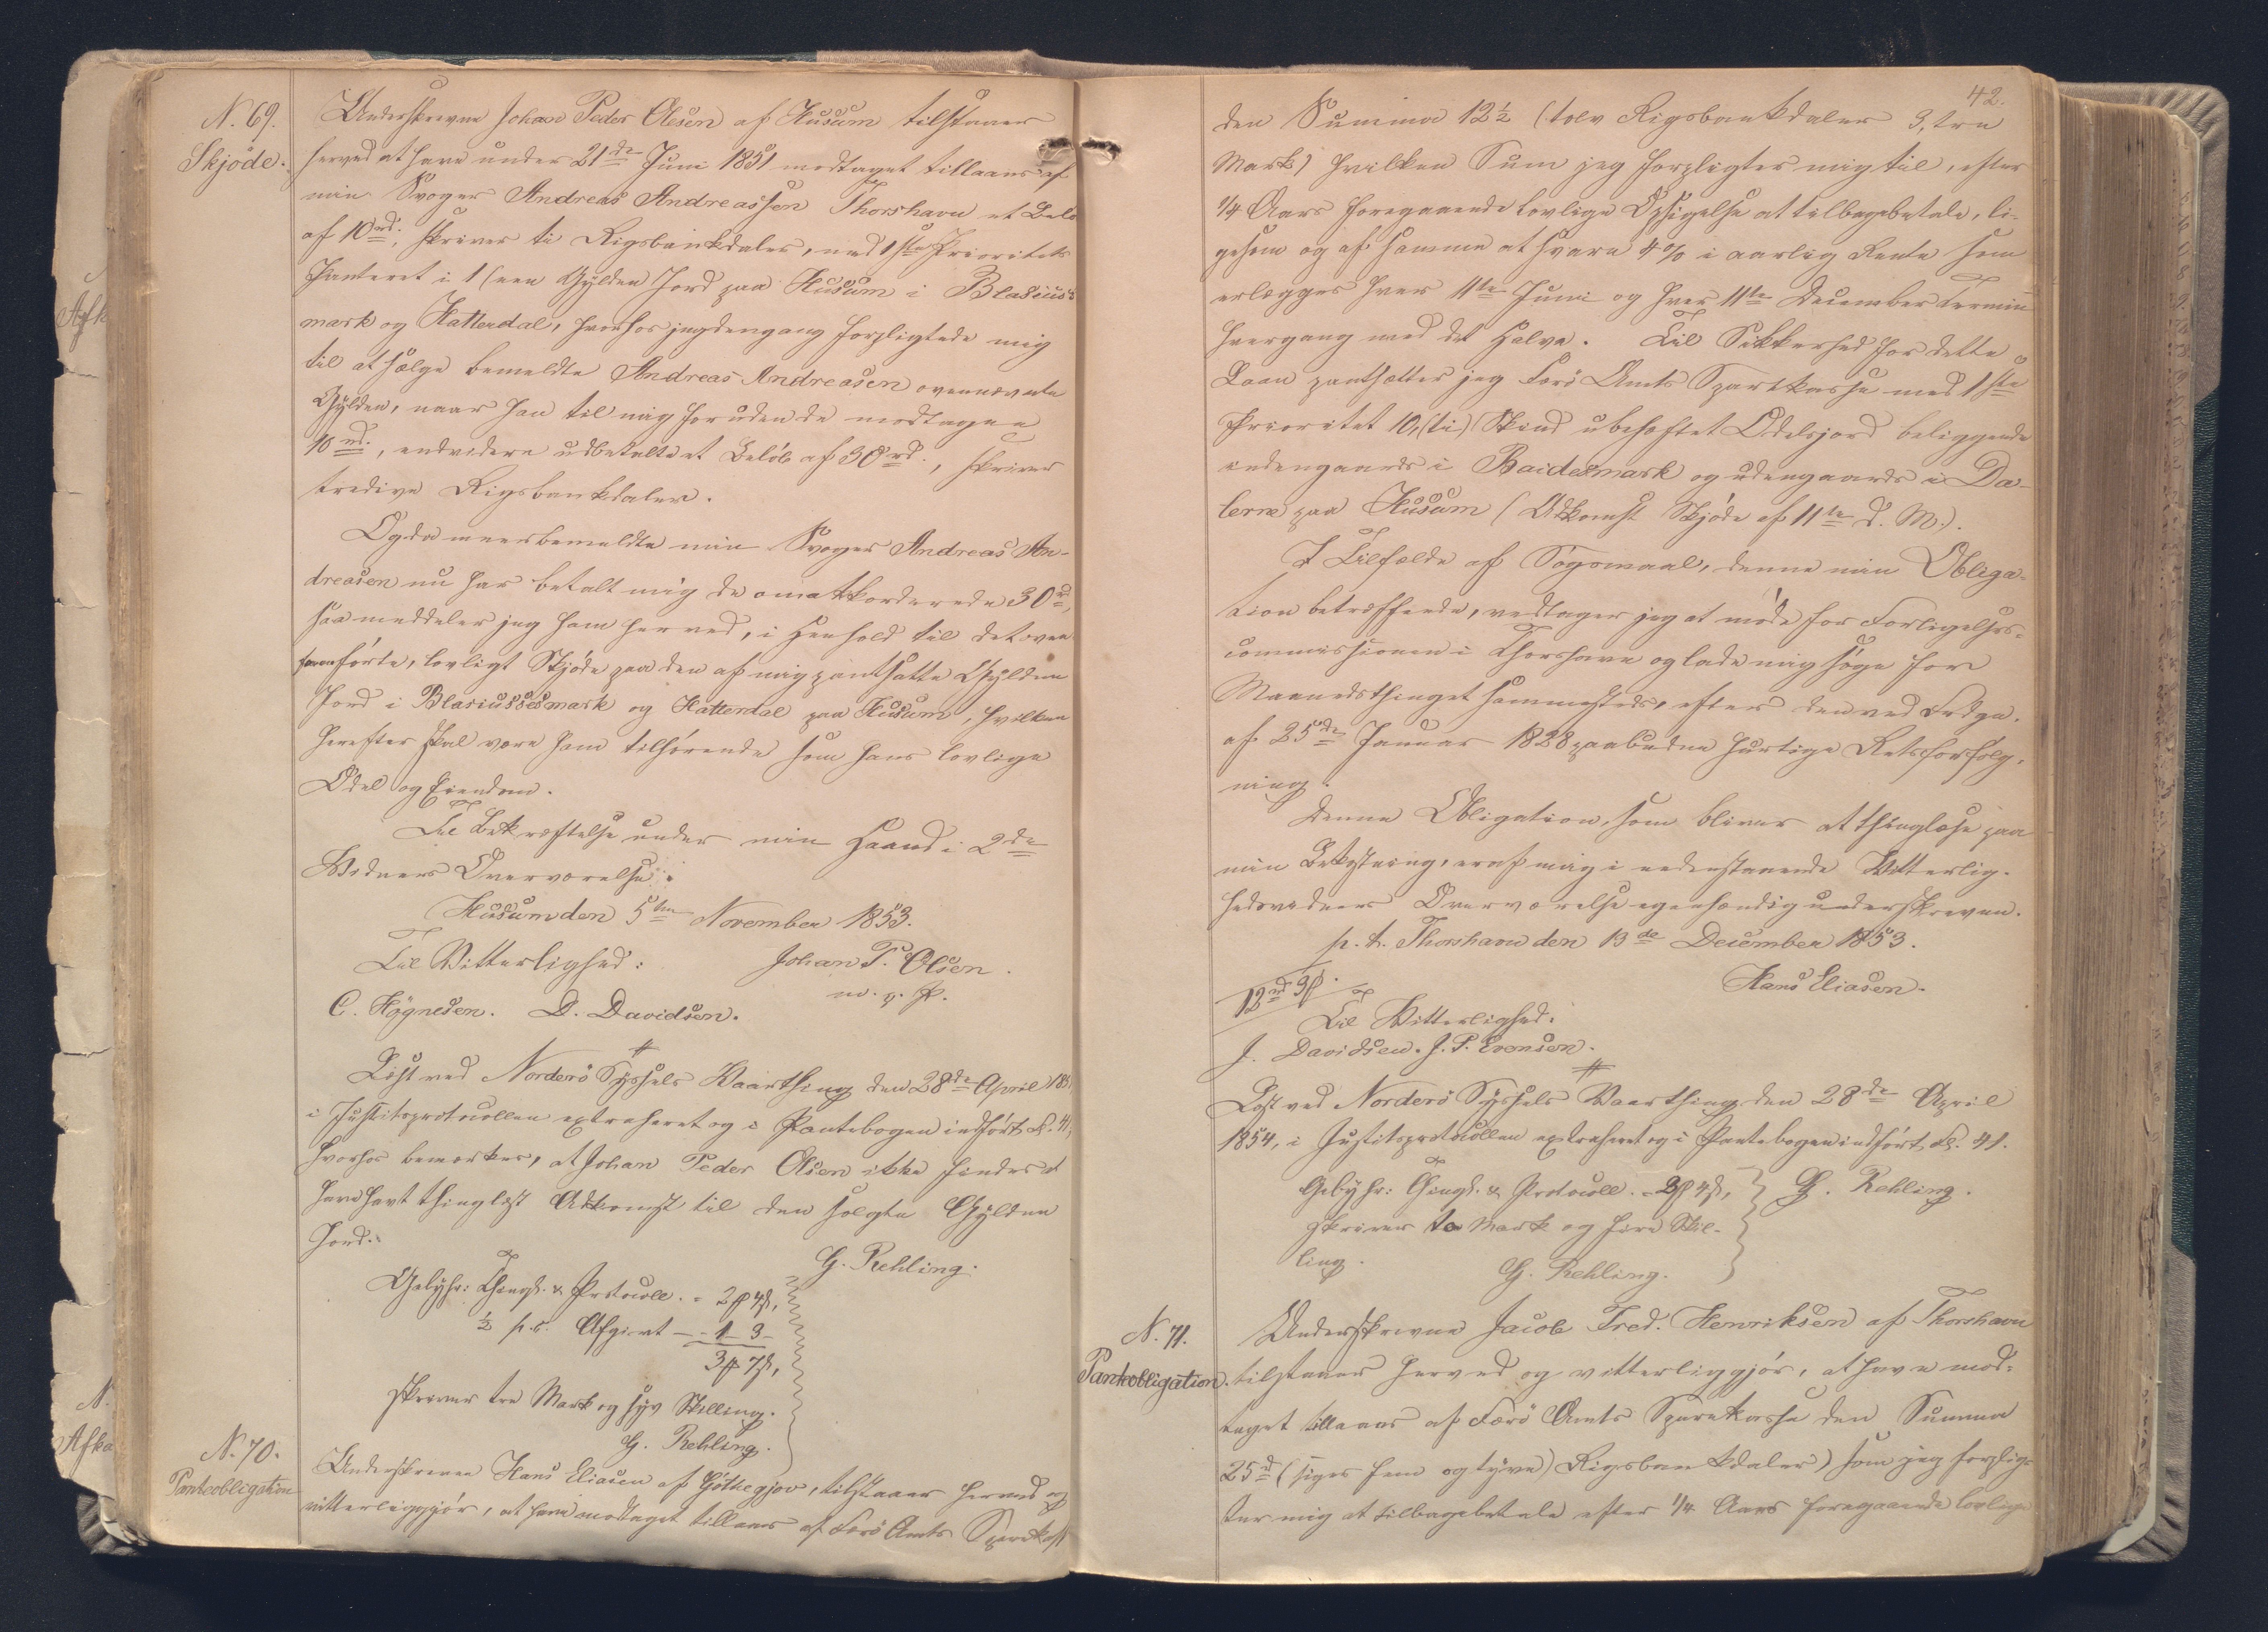 N. 69.
Skjøde.
Underskrevne Johan Peder Olesen af Husum tilstaaer
herved at have under 21de Juni 1851 modtaget tillaans af
min Svoger Andreas Andreassen Thorshavn et Belø
af 10rd., skriver ti Rigsbankdaler, med 1ste Prioritets
Panteret i 1 (een Gylden Jord paa Husum i Blasius's
mark og Hatterdal, hvorhos jeg dengang forpligtede mig
til at sælge bemeldte Andreas Andreasen ovennævnte
Gylden, naar han til mig foruden de modtagne
10rd., endvidere udbetalte et Beløb af 30rd., skriver
tredive Rigsbankdaler.
Og da meerbemeldte min Svoger Andreas An-
dreasen nu har betalt mig de omakkorderede 30rd,
saa meddeler jeg ham herved, i Henhold til det oven
førte, lovligt Skjøde paa den af mig pantsatte Gylden
Jord i Blasiussesmark og Hatterdal paa Husum, hvilken
herefter skal være ham tilhørende som hans lovlige
Odel og Eiendom.
Til Bekræftelse under min Haand i 2de
Vidners Overværelse.
Husum den 5te November 1853.
Til Vitterlighed: Johan P. Olsen.
m. p. P.
C. Høgnesen. D. Davidsen.
Læst ved Norderø Syssels Vaarthing den 28de April 185
i Justitsprotocollen extraheret og i Pantebogen indført Fol. 41,
hvorhos bemærkes, at Johan Peder Olsen ikke findes at
have havt thinglæst Adkomst til den solgte Gylden
Jord.
G. Rehling.
Gebyhr: Thingl. & Protocoll. - 2 ₰ 4 s,
½ p.c. Afgivt - - 1 - 3 -
3 ₰ 7 s,
skriver tre Mark og syv Skilling.
G. Rehling.
N. 70.
Panteobligation
Underskrevne Hans Eliasen af Gøthegjov, tilstaaer herved og
vitterliggjør, at have modtaget tillaans af Færø Amts Sparekass
42.
den Summa 12½ (tolv Rigsbankdaler 3, tre
Mark) hvilken Sum jeg forpligter mig til, efter
1/4 Aars foregaaende lovlige Opsigelse at tilbagebetale, li-
gesom og af samme at svare 4% i aarlig Rente som
erlægges hver 11te Juni og hver 11te December Termin
hvergang med det Halve. Til Sikkerhed for dette
Laan pantsætter jeg Færø Amts Sparekasse med 1ste
Prioritet 10, (ti) Skind ubehæftet Odelsjord beliggende
indengaards i Baidesmark og udengaards i Da-
lerne paa Husum (Adkomst Skjøde af 11te d. M.).
I Tilfælde af Søgsmaal, denne min Obliga-
tion betræffende, vedtager jeg at møde for Forligelses-
commissionen i Thorshavn og lade mig søge for
Maanedsthinget sammesteds, efter den ved Frdgn.
af 25de Januar 1828 paabudne hurtige Retsforfølg-
ning.
Denne Obligation, som bliver at thinglæse paa
min Bekostning, er af mig i nedenstaaende Vitterlig-
hedsvidners Overværelse egenhændig underskreven.
p. t. Thorshavn den 13de December 1853.
12rd 3₰. Hans Eliasen.
Til Vitterlighed:
J. Davidsen. J. P. Evensen.
Læst ved Norderø Syssels Vaarthing den 28de April
1854, i Justitsprotocollen extraheret og i Pantebogen indført Fol. 41.
Gebyhr: Thingl. & Protocoll. - 2₰ 4s, G. Rehling.
skriver to Mark og fire Skil-
ling.
G. Rehling.
N. 71.
Panteobligation.
Underskrevne Jacob Fred. Henriksen af Thorshavn
tilstaaer herved og vitterliggjør, at have mod-
taget tillaans af Færø Amts Sparekasse den Summa
25rd (siger fem og tyve) Rigsbankdaler) som jeg forplig-
ter mig at tilbagebetale efter 1/4 Aars foregaaende lovlige